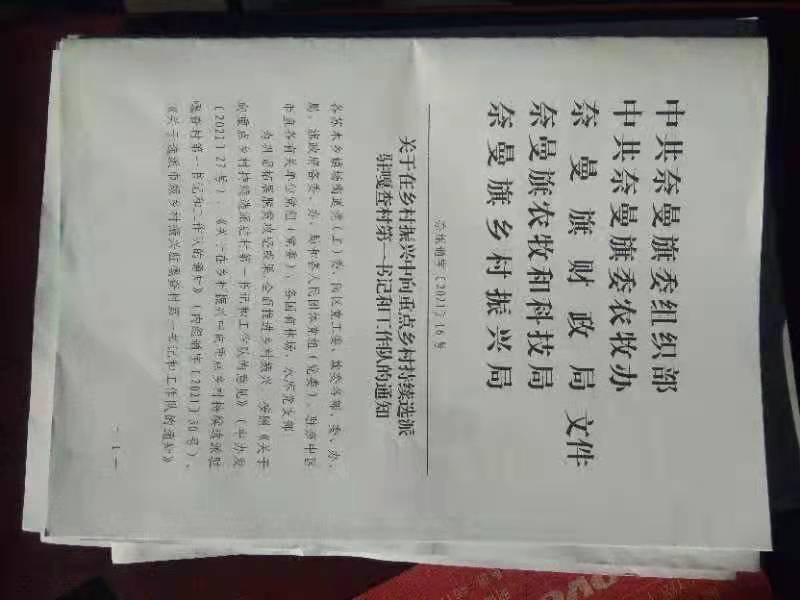 中共奈曼旗委组织部
中共奈曼旗委农牧办
奈曼旗财政局 文件
奈曼旗农牧和科技局
奈曼旗乡村振兴局
奈组通字〔2021〕16号
关于在乡村振兴中向重点乡村持续选派
驻嘎查村第一书记和工作队的通知
各苏木乡镇场街道党（工）委、园区党工委，旗委各部、委、办、
局，旗政府各委、办、局和各人民团体党组（党委），驻奈中区
市直各有关单位党组（党委），各国有林场、水库党支部：
为巩固拓展脱贫攻坚成果，全面推进乡村振兴，按照《关于
向重点乡村持续选派驻村第一书记和工作队的意见》（中办发
〔2021〕27号）、《关于在乡村振兴中向重点乡村持续选派驻
嘎查村第一书记和工作队的通知》（内组通字〔2021〕30号）、
《关于选派市级乡村振兴驻嘎查村第一书记和工作队的通知》
— 1 —